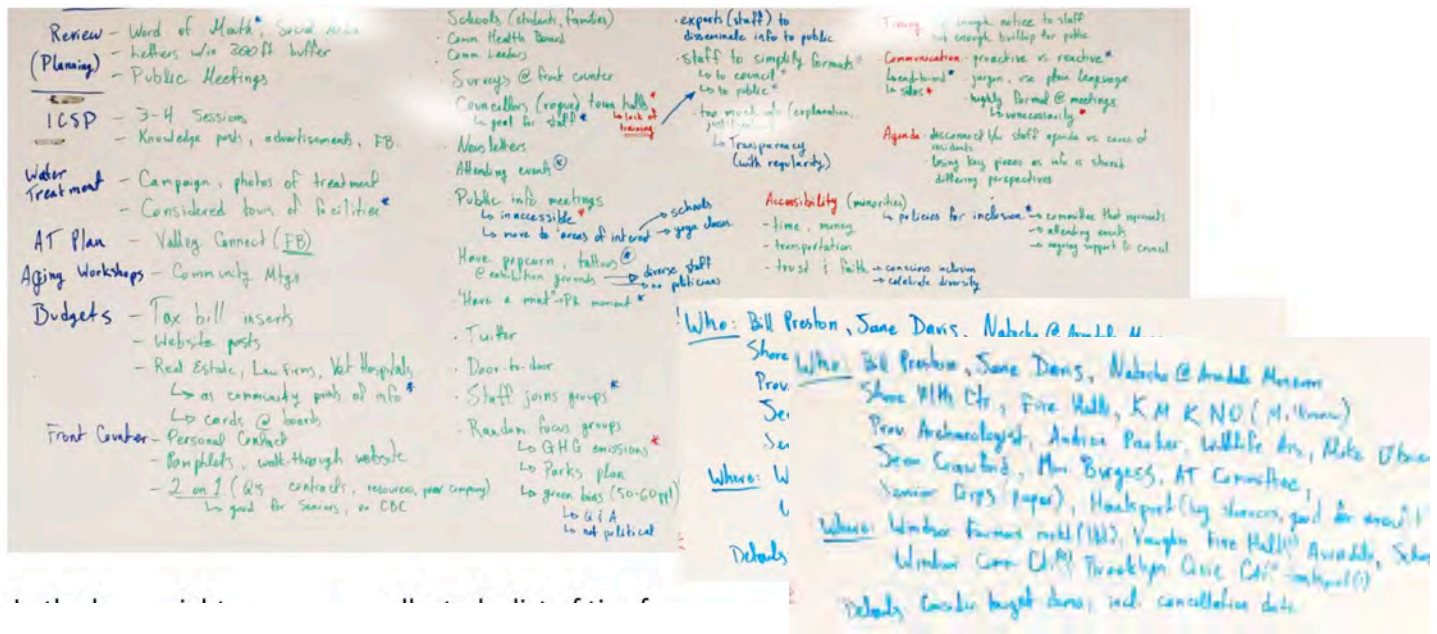 Review - Word of Mouth*, Social Media
(Planning) - Letters w/in 300ft buffer
- Public Meetings
ICSP - 3-4 Sessions
- Knowledge posts, advertisements, FB.
Water Treatment - Campaign, photos of treatment
- Considered tours of facilities*
AT Plan - Valley Connect (FB)
Aging Workshops - Community Mtgs
Budgets - Tax bill inserts
- Website posts
- Real Estate, Law Firms, Vet Hospitals
↳ as community points of info*
↳ cards @ boards
Front Counter - Personal Contact
- Pamphlets, walk-through website
- 2 on 1 (Q's contracts, resources, company)
↳ good for seniors, or CBC
Schools (students, families)
· Comm Health Board
· Comm Leaders
· Surveys @ front counter
Councillors (rogue) town halls*
↳ goal for staff*
↳ lack of training
· Newsletters
· Attending events*
· Public info meetings
↳ inaccessible*
↳ move to 'areas of interest → schools
→ yoga classes
· Have popcorn, tattoos*
@ exhibition grounds → diverse staff
→ no politicians
· "Have a mint" → PR moment*
· Twitter
· Door-to-door
· Staff joins groups*
· Random focus groups
↳ GHG emissions*
↳ Parks plan
↳ green bins (50-60ppl)
↳ Q & A
↳ not political
· experts (staff) to
disseminate info to public
· staff to simplify formats*
↳ to council*
↳ to public*
· too much info (explanation,
justification)
↳ Transparency
(with regularity)
Timing enough notice to staff
not enough buildup for public
Communication · proactive vs reactive*
* · jargon, use plain language
↳ silos*
· highly formal @ meetings
↳ unnecessarily*
Agenda · disconnect b/w staff agenda vs cares of
residents
· losing key pieces as info is shared
differing perspectives
Accessibility (minorities)
↳ policies for inclusion* → committee that represents
→ attending events
→ ongoing support to council
- time, money
- transportation
- trust & faith → conscious inclusion
→ celebrate diversity
Who: Bill Preston, Jane Davis, Natasha @ Avondale
Shore
Prov.
Se
Se
Where: W
Details
Who: Bill Preston, Jane Davis, Natasha @ Avondale Museum
Shore Hlth Ctr, Fire Halls, KMKNO
Prov. Archaeologist, Andrea Parker, Wildlife Ass, Mike
Sean Crawford, Burgess, AT Committee,
Senior Grps (paper), Hantsport
Where: Windsor Farmers mrkt, Vaughn Fire Hall, Avondale,
Windsor Comm Ctr, Brooklyn Civic Ctr
Details: Consider target demo, incl. cancellation date